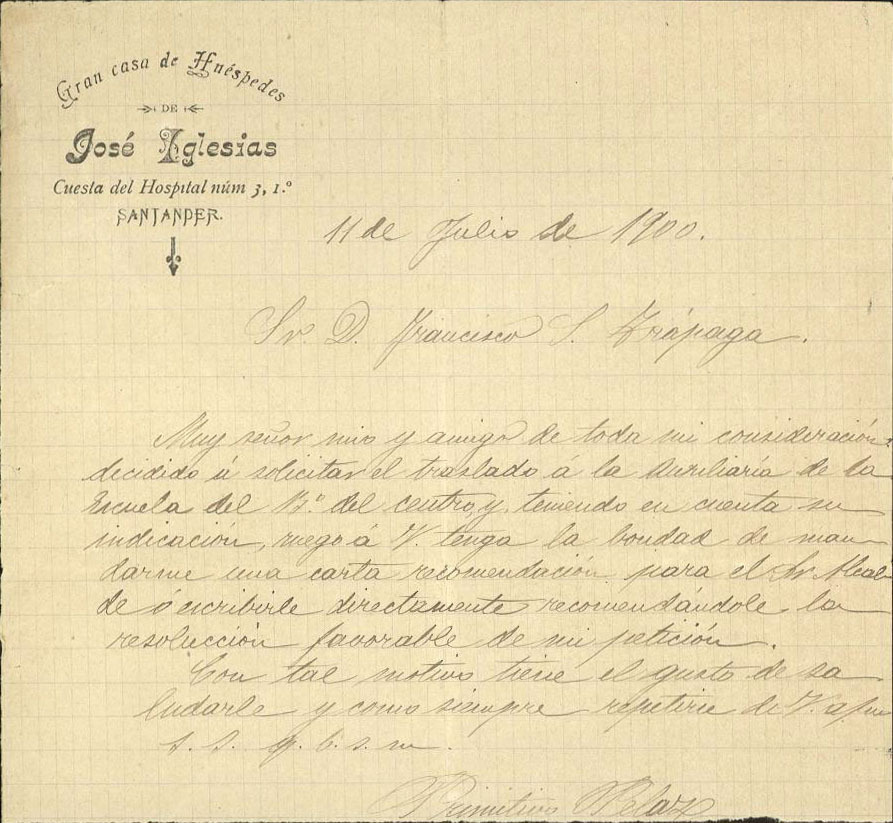 Gran casa de Huéspedes
DE
José Iglesias
Cuesta del Hospital núm 3, 1.º
SANTANDER.
11 de Julio de 1900.
Sr. D. Francisco S. Trápaga.
Muy señor mio y amigo de toda mi consideración:
decidido á solicitar el traslado á la Auxiliaría de la
Escuela del Bº del centro, y teniendo en cuenta su
indicación, ruego á V. tenga la bondad de man
darme una carta recomendación para el Sr Alcal
de ó escribirle directamente recomendándole la
resolucción favorable de mi petición.
Con tal motivo tiene el gusto de sa
ludarle y como siempre repetirse de V. afmo
s. s. q. b. s. m.
Primitivo Pelaz